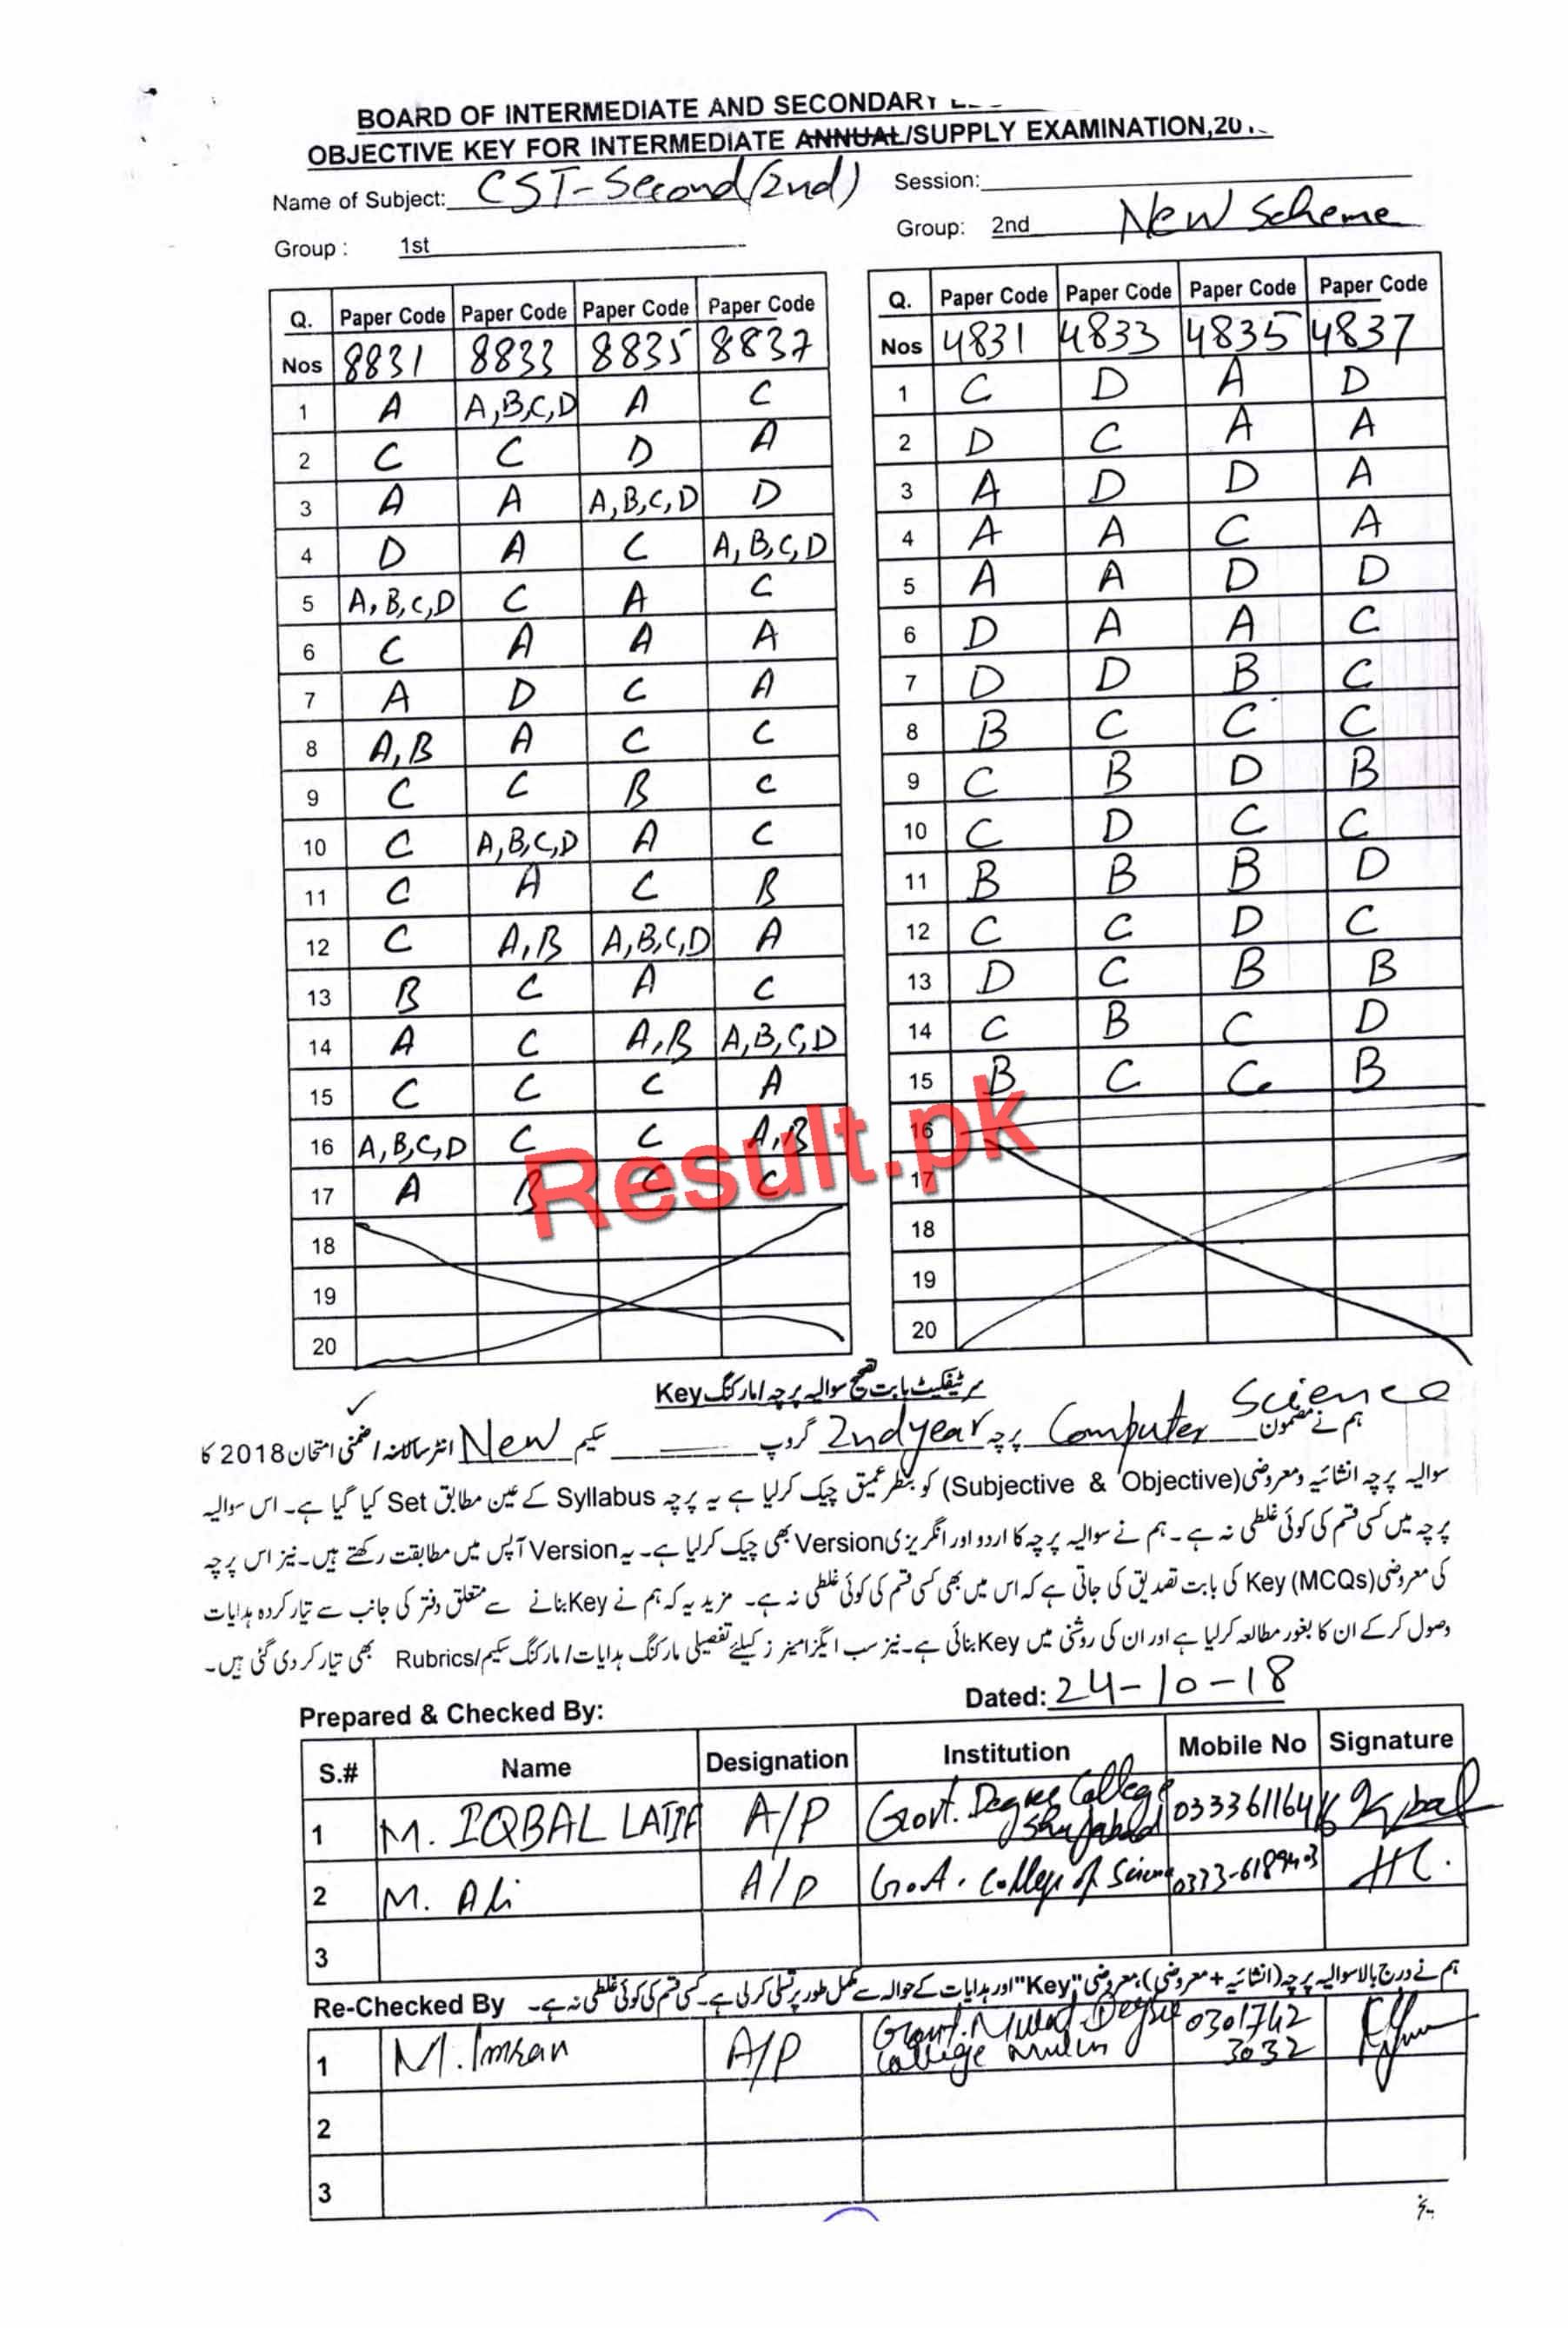 BOARD OF INTERMEDIATE AND SECONDARY
OBJECTIVE KEY FOR INTERMEDIATE ANNUAL/SUPPLY EXAMINATION,201
Name of Subject: CST-Second(2nd) Session:
Group : 1st Group: 2nd New Scheme
Q. Nos Paper Code 8831 Paper Code 8833 Paper Code 8835 Paper Code 8837
1 A A,B,C,D A C
2 C C D A
3 A A A,B,C,D D
4 D A C A,B,C,D
5 A,B,C,D C A C
6 C A A A
7 A D C A
8 A,B A C C
9 C C B C
10 C A,B,C,D A C
11 C A C B
12 C A,B A,B,C,D A
13 B C A C
14 A C A,B A,B,C,D
15 C C C A
16 A,B,C,D C C A,B
17 A B C C
18
19
20
Q. Nos Paper Code 4831 Paper Code 4833 Paper Code 4835 Paper Code 4837
1 C D A D
2 D C A A
3 A D D A
4 A A C A
5 A A D D
6 D A A C
7 D D B C
8 B C C C
9 C B D B
10 C D C C
11 B B B D
12 C C D C
13 D C B B
14 C B C D
15 B C C B
16
17
18
19
20
Result.pk
سرٹیفکیٹ بابت تصحیح سوالیہ پرچہ/مارکنگ Key
ہم نے مضمون Computer Science پرچہ 2nd year گروپ سکیم New انٹر سالانہ/ضمنی امتحان 2018 کا
سوالیہ پرچہ انشائیہ ومعروضی (Subjective & Objective) کو بنظر عمیق چیک کرلیا ہے یہ پرچہ Syllabus کے عین مطابق Set کیا گیا ہے۔ اس سوالیہ
پرچہ میں کسی قسم کی کوئی غلطی نہ ہے۔ ہم نے سوالیہ پرچہ کا اردو اور انگریزی Version بھی چیک کرلیا ہے۔ یہ Version آپس میں مطابقت رکھتے ہیں۔ نیز اس پرچہ
کی معروضی (MCQs) Key کی بابت تصدیق کی جاتی ہے کہ اس میں بھی کسی قسم کی کوئی غلطی نہ ہے۔ مزید یہ کہ ہم نے Key بنانے سے متعلق دفتر کی جانب سے تیار کردہ ہدایات
وصول کرکے ان کا بغور مطالعہ کرلیا ہے اور ان کی روشنی میں Key بنائی ہے۔ نیز سب ایگزامینرز کیلئے تفصیلی مارکنگ ہدایات/مارکنگ سکیم/Rubrics بھی تیار کردی گئی ہیں۔
Prepared & Checked By: Dated: 24-10-18
S.# Name Designation Institution Mobile No Signature
1 M. IQBAL LATIF A/P Govt. Degree College Shujabad
2 M. Ali A/P Govt. College of Science
3
ہم نے درج بالا سوالیہ پرچہ (انشائیہ + معروضی)، معروضی "Key" اور ہدایات کے حوالہ سے مکمل طور پر تسلی کرلی ہے۔ کسی قسم کی کوئی غلطی نہ ہے۔
Re-Checked By
1 M. Imran A/P Degree College 0301742 3032
2
3